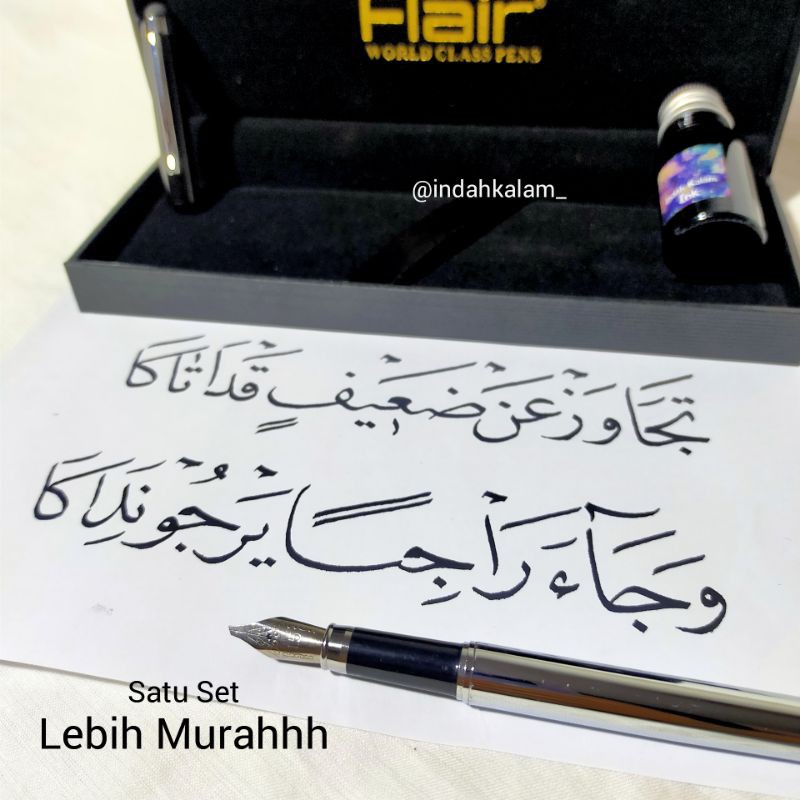 Flair
WORLD CLASS PENS
@indahkalam_
Kalam
Ink
تَجَاوَزْ عَنْ ضَعِيْفٍ قَدْ اَتَاكَا
وَجَآءَ رَاجِيًا يَرْجُوْ نَدَاكَا
Satu Set
Lebih Murahhh